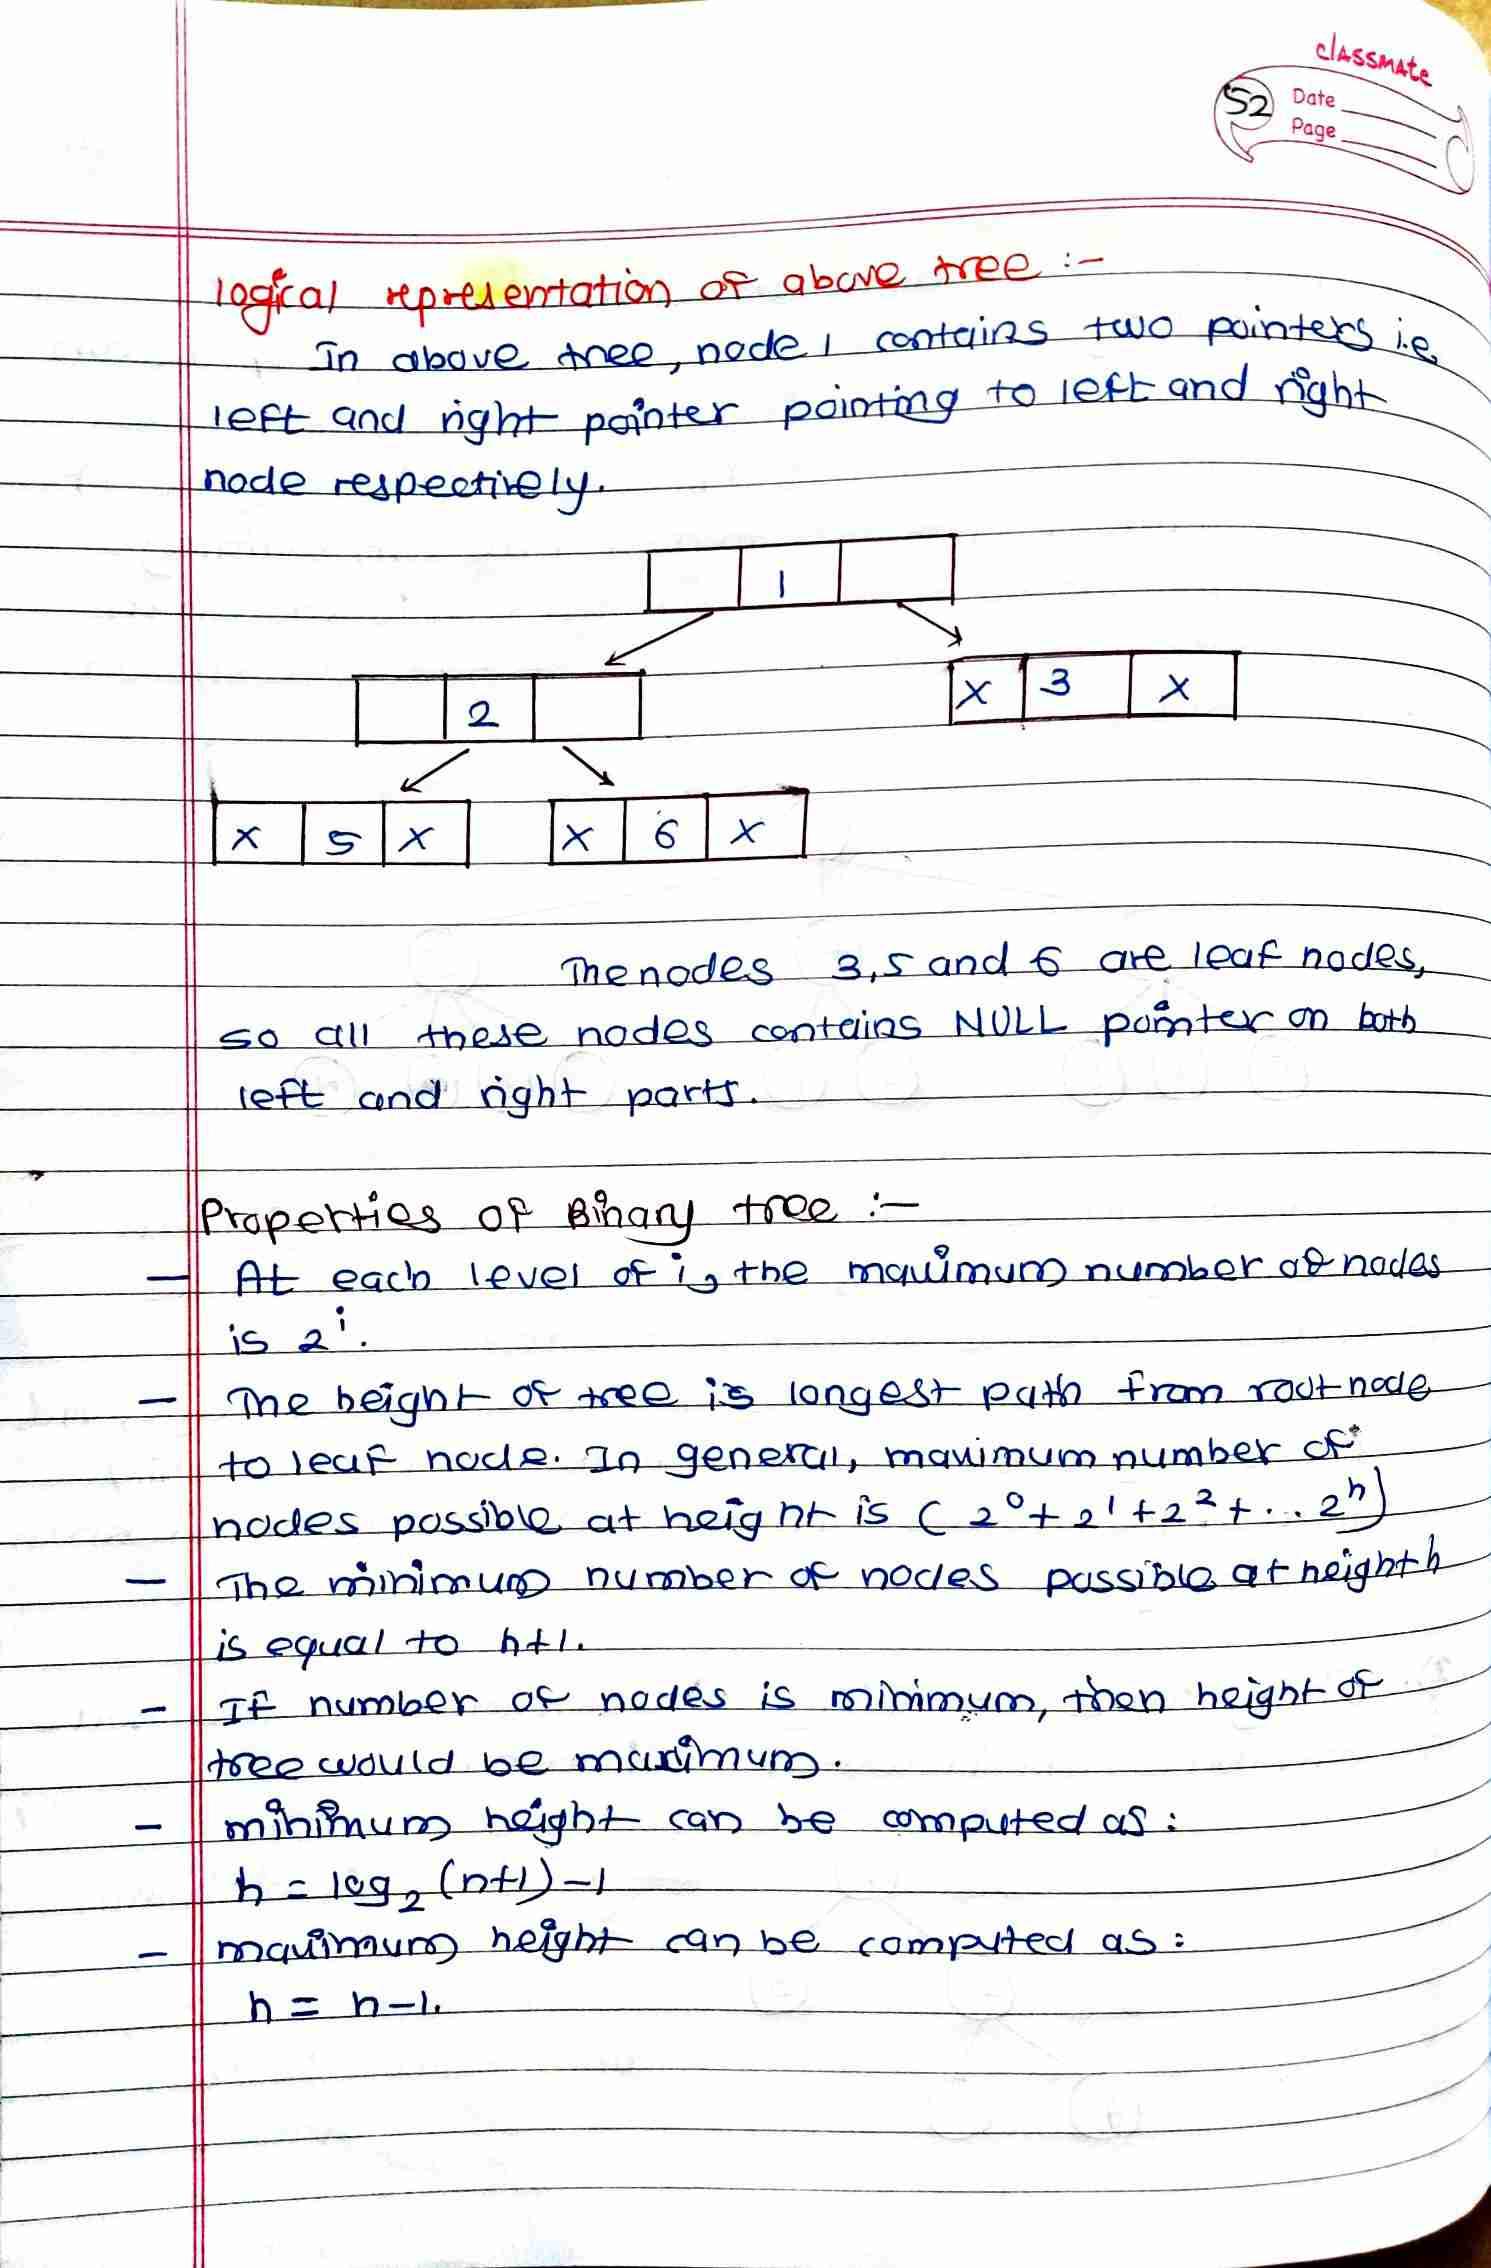 classmate
52 Date
Page
logical representation of above tree :-
In above tree, node 1 contains two pointers i.e
left and right pointer pointing to left and right
node respectively.
1
2
X 3 X
X 5 X
X 6 X
The nodes 3, 5 and 6 are leaf nodes,
so all these nodes contains NULL pointer on both
left and right parts.
Properties of Binary tree :-
- At each level of i, the maximum number of nodes
is 2^i.
- The height of tree is longest path from root node
to leaf node. In general, maximum number of
nodes possible at height is (2^0 + 2^1 + 2^2 + ... 2^h)
- The minimum number of nodes possible at height h
is equal to h+1.
- If number of nodes is minimum, then height of
tree would be maximum.
- minimum height can be computed as:
h = log₂(n+1)-1
- maximum height can be computed as:
h = n-1.